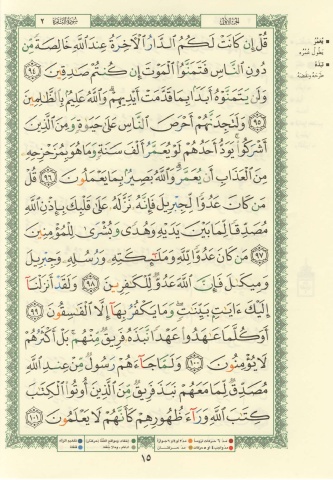 الجزء الأول
سورة البقرة ٢
قُلْ إِن كَانَتْ لَكُمُ ٱلدَّارُ ٱلْأَخِرَةُ عِندَ ٱللَّهِ خَالِصَةً مِّن
دُونِ ٱلنَّاسِ فَتَمَنَّوُا۟ ٱلْمَوْتَ إِن كُنتُمْ صَٰدِقِينَ ٩٤
وَلَن يَتَمَنَّوْهُ أَبَدًۢا بِمَا قَدَّمَتْ أَيْدِيهِمْ وَٱللَّهُ عَلِيمٌۢ بِٱلظَّٰلِمِينَ
٩٥ وَلَتَجِدَنَّهُمْ أَحْرَصَ ٱلنَّاسِ عَلَىٰ حَيَوٰةٍ وَمِنَ ٱلَّذِينَ
أَشْرَكُوا۟ يَوَدُّ أَحَدُهُمْ لَوْ يُعَمَّرُ أَلْفَ سَنَةٍ وَمَا هُوَ بِمُزَحْزِحِهِۦ
مِنَ ٱلْعَذَابِ أَن يُعَمَّرَ وَٱللَّهُ بَصِيرٌۢ بِمَا يَعْمَلُونَ ٩٦ قُلْ
مَن كَانَ عَدُوًّا لِّجِبْرِيلَ فَإِنَّهُۥ نَزَّلَهُۥ عَلَىٰ قَلْبِكَ بِإِذْنِ ٱللَّهِ
مُصَدِّقًا لِّمَا بَيْنَ يَدَيْهِ وَهُدًى وَبُشْرَىٰ لِلْمُؤْمِنِينَ
٩٧ مَن كَانَ عَدُوًّا لِّلَّهِ وَمَلَٰٓئِكَتِهِۦ وَرُسُلِهِۦ وَجِبْرِيلَ
وَمِيكَىٰلَ فَإِنَّ ٱللَّهَ عَدُوٌّ لِّلْكَٰفِرِينَ ٩٨ وَلَقَدْ أَنزَلْنَآ
إِلَيْكَ ءَايَٰتٍۭ بَيِّنَٰتٍ وَمَا يَكْفُرُ بِهَآ إِلَّا ٱلْفَٰسِقُونَ ٩٩
أَوَكُلَّمَا عَٰهَدُوا۟ عَهْدًا نَّبَذَهُۥ فَرِيقٌ مِّنْهُم بَلْ أَكْثَرُهُمْ
لَا يُؤْمِنُونَ ١٠٠ وَلَمَّا جَآءَهُمْ رَسُولٌ مِّنْ عِندِ ٱللَّهِ
مُصَدِّقٌ لِّمَا مَعَهُمْ نَبَذَ فَرِيقٌ مِّنَ ٱلَّذِينَ أُوتُوا۟ ٱلْكِتَٰبَ
كِتَٰبَ ٱللَّهِ وَرَآءَ ظُهُورِهِمْ كَأَنَّهُمْ لَا يَعْلَمُونَ ١٠١
١٥